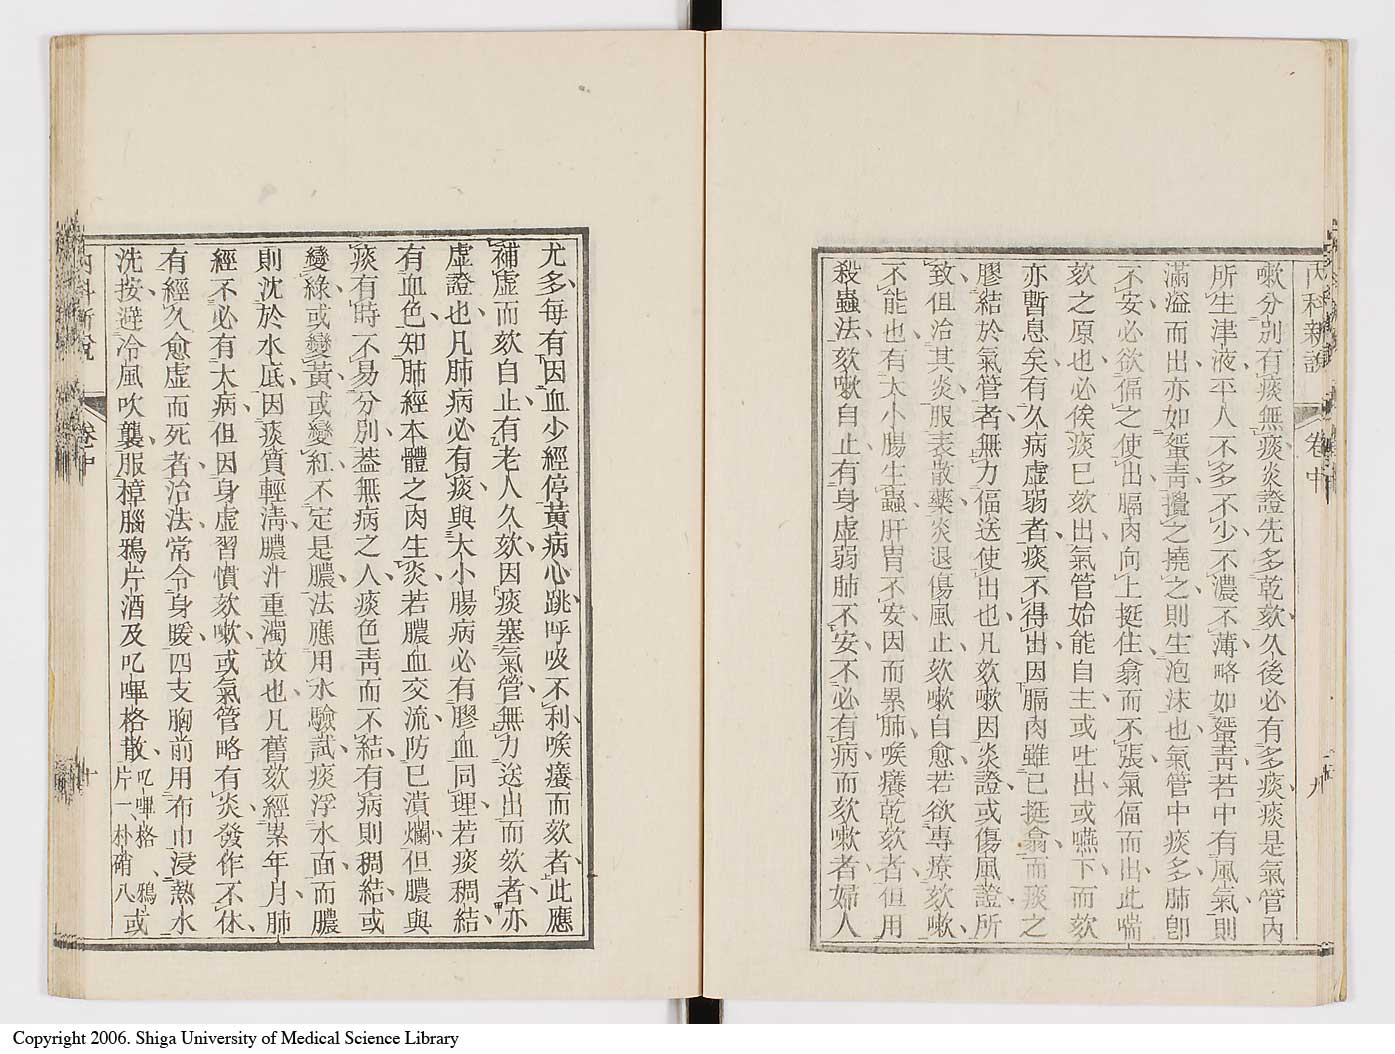 內科新說 卷中 九
嗽分別有痰無痰炎證先多乾欬久後必有多痰痰是氣管內
所生津液平人不多不少不濃不薄略如蜑靑若中有風氣則
滿溢而出亦如蜑靑攪之撓之則生泡沫也氣管中痰多肺卽
不安必欲偪之使出膈肉向上挺住翕而不張氣偪而出此喘
欬之原也必俟痰已欬出氣管始能自主或吐出或嚥下而欬
亦暫息矣有久病虛弱者痰不得出因膈肉雖已挺翕而痰之
膠結於氣管者無力偪送使出也凡欬嗽因炎證或傷風證所
致但治其炎服表散藥炎退傷風止欬嗽自愈若欲專療欬嗽
不能也有大小腸生蟲肝胃不安因而累肺喉癢乾欬者但用
殺蟲法欬嗽自止有身虛弱肺不安不必有病而欬嗽者婦人
尤多每有因血少經停黃病心跳呼吸不利喉癢而欬者此應
補虛而欬自止有老人久欬因痰塞氣管無力送出而欬者亦
虛證也凡肺病必有痰與大小腸病必有膠血同理若痰稠結
有血色知肺經本體之肉生炎若膿血交流防已潰爛但膿與
痰有時不易分別葢無病之人痰色靑而不結有病則稠結或
變綠或變黃或變紅不定是膿法應用水驗試痰浮水面而膿
則沈於水底因痰質輕淸膿汁重濁故也凡舊欬經累年月肺
經不必有大病但因身虛習慣欬嗽或氣管略有炎發作不休
有經久愈虛而死者治法常令身暖四支胸前用布巾浸熱水
洗按避冷風吹襲服樟腦鴉片酒及叱嗶格散叱嗶格一鴉片一朴硝八或
內科新說 卷中 十
Copyright 2006. Shiga University of Medical Science Library